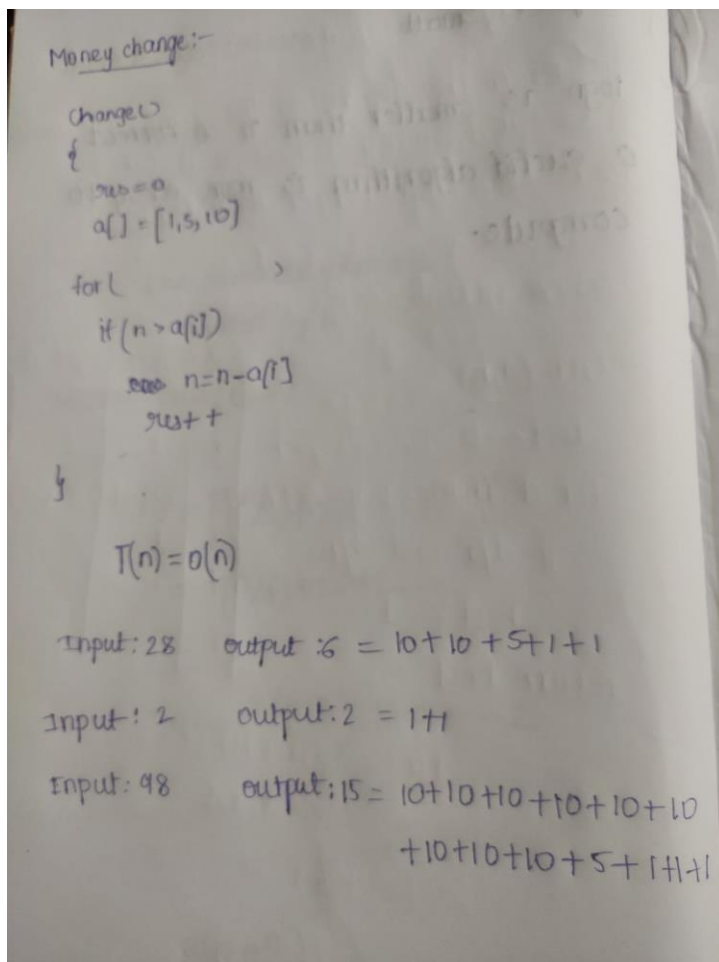 Money change:-
change()
{
res=0
a[] = [1,5,10]
for( )
if (n > a[i])
n=n-a[i]
res++
}
T(n)=O(n)
Input: 28 output :6 = 10+10+5+1+1
Input: 2 output: 2 = 1+1
Input: 98 output: 15 = 10+10+10+10+10+10
+10+10+10+5+1+1+1